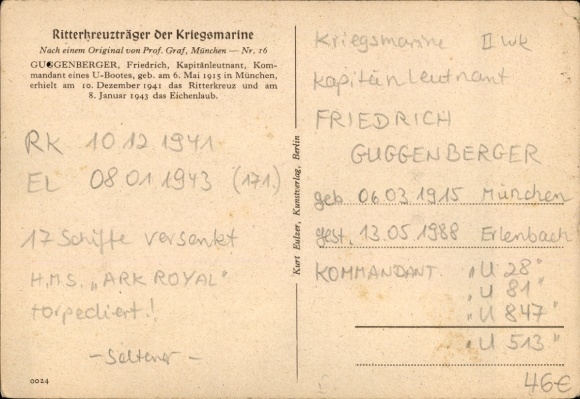 Ritterkreuzträger der Kriegsmarine
Nach einem Original von Prof. Graf, München — Nr. 16
GUGGENBERGER, Friedrich, Kapitänleutnant, Kom-
mandant eines U-Bootes, geb. am 6. Mai 1915 in München,
erhielt am 10. Dezember 1941 das Ritterkreuz und am
8. Januar 1943 das Eichenlaub.
RK 10 12 1941
EL 08.01 1943 (171.)
17 Schiffe versenkt
H.M.S. „ARK ROYAL"
torpediert!
- Seltener -
0024
Kurt Eulzer, Kunstverlag, Berlin
Kriegsmarine II WK
Kapitänleutnant
FRIEDRICH
GUGGENBERGER
geb. 06.03 1915 München
gest. 13.05 1988 Erlenbach
KOMMANDANT. "U 28"
"U 81"
"U 847"
"U 513"
46€